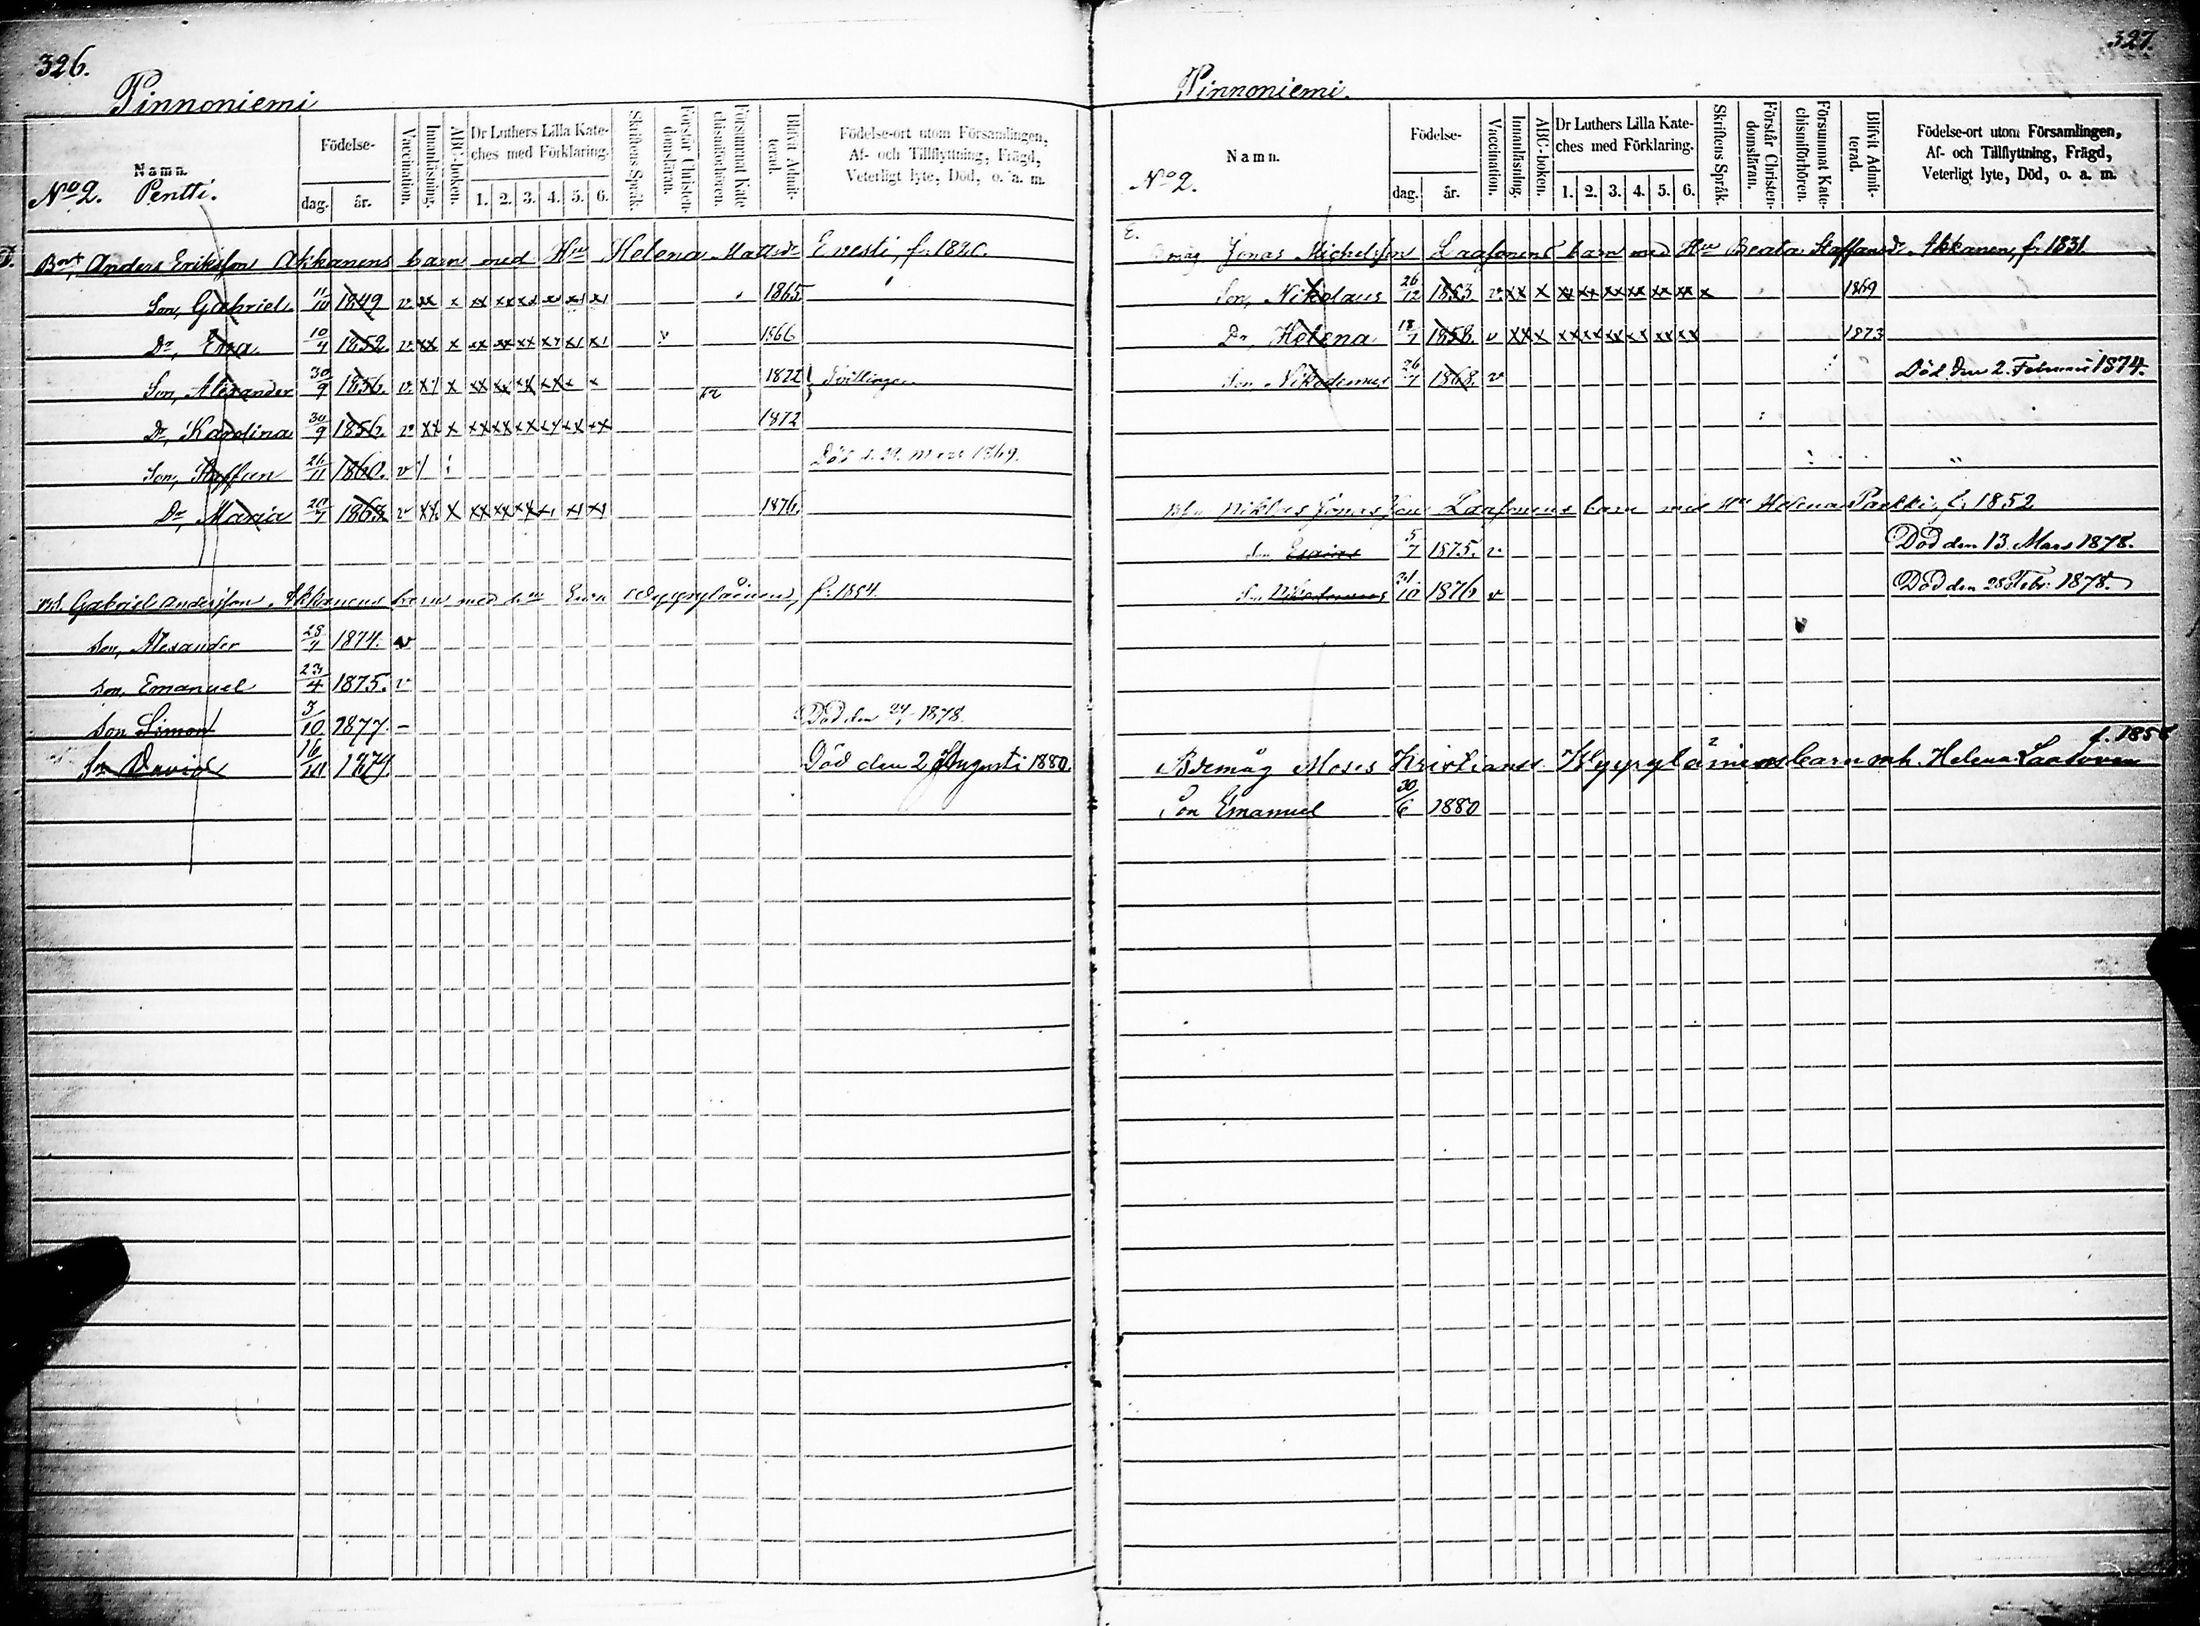 326.
Pinnoniemi
Namn.
No 2. Pentti.
Födelse-
dag. år.
Vaccination.
Innanläsning.
ABC-boken.
Dr Luthers Lilla Kate-
ches med Förklaring.
1. 2. 3. 4. 5. 6.
Skriftens Språk.
Förstår Christen-
domsläran.
Försummat Kate-
chismiförhören.
Blifvit Admit-
terad.
Födelse-ort utom Församlingen,
Af- och Tillflyttning, Frägd,
Veterligt lyte, Död, o. a. m.
Anders Eriksson Akkanens barn med Hu Helena Mattsdr
Son, Gabriel 11/10 1849 v xx x xx xx xx xx xx xx 1865
Dr, Eva 10/9 1852 v xx x xx xx xx xx xx xx 1866
Son, Alexander 30/9 1856 v xx x xx xx xx xx x x Tvillingar
Dr, Karolina 30/9 1856 v xx x xx xx xx xx xx xx 1872
Son, Staffan 26/11 1860 v Död Mars 1869.
Dr Maria 1863 v xx x xx xx xx xx xx xx 1876
Gabriel Andersson Akkanens barn med hu f. 1854
Son, Alexander 1874. v
Son, Emanuel 23/4 1875. v
Son Simon 3/10 1877. - Död den 1878.
Sn David 16/ 1879. Död den 2 Augusti 1880.
327.
Pinnoniemi.
No 2.
Namn.
Födelse-
dag. år.
Vaccination.
Innanläsning.
ABC-boken.
Dr Luthers Lilla Kate-
ches med Förklaring.
1. 2. 3. 4. 5. 6.
Skriftens Språk.
Förstår Christen-
domsläran.
Försummat Kate-
chismiförhören.
Blifvit Admit-
terad.
Födelse-ort utom Församlingen,
Af- och Tillflyttning, Frägd,
Veterligt lyte, Död, o. a. m.
E.
måg Jonas Michelsson Laasonens barn med Hu Beata Staffansdr Akkanen, f. 1831.
Son, Nikolaus 26/12 1853 v xx x xx xx xx xx xx xx x 1869
Dr, Helena 18/7 1858. v xx x xx xx xx xx xx xx 1873
Son Nikodemus 26/7 1868. v Död den 2. Februari 1874.
Niklas Jonasson Laasonens barn med Hu Helena f. 1852
Son Esaias 5/7 1875. v Död den 13. Mars 1878.
Son Nikodemus /10 1876 v Död den 28 Febr. 1878.
f. 1856
Moses Kristianss. Hyyryläinens barn m h. Helena Laasonen
Son Emanuel 30/6 1880